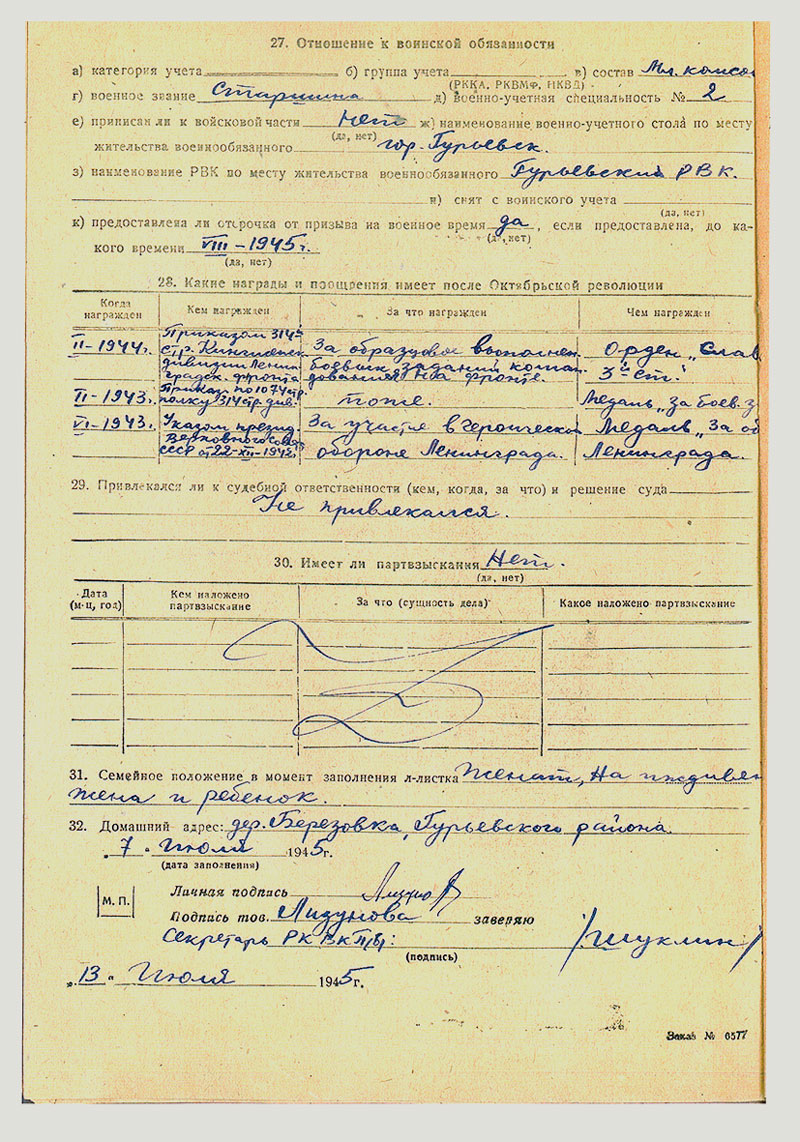 27. Отношение к воинской обязанности
а) категория учета б) группа учета в) состав Мл. комсо
(РККА, РКВМФ, НКВД)
г) военное звание Старшина д) военно-учетная специальность № 2
е) приписан ли к войсковой части Нет ж) наименование военно-учетного стола по месту
(да, нет)
жительства военнообязанного гор. Гурьевск.
з) наименование РВК по месту жительства военнообязанного Гурьевский РВК.
и) снят с воинского учета
(да, нет)
к) предоставлена ли отсрочка от призыва на военное время да, если предоставлена, до ка-
(да, нет)
кого времени VIII-1945г.
(да, нет)
28. Какие награды и поощрения имеет после Октябрьской революции
Когда награжден Кем награжден За что награжден Чем награжден
II-1944г. Приказом 314й стр. Кингисепск. дивизии Ленинградск. фронта За образцовое выполнен. боевых заданий командования на фронте. Орден „Слав 3й ст."
II-1943г. Приказ по 1074 стр. полку 314 стр. див. тоже. Медаль „За боев. з
VI-1943г. Указом презид. Верховного Сов. СССР от 22-XII-1942г. За участие в героической обороне Ленинграда. Медаль „За об Ленинграда.
29. Привлекался ли к судебной ответственности (кем, когда, за что) и решение суда
Не привлекался.
30. Имеет ли партвзыскания Нет.
(да, нет)
Дата (м-ц, год) Кем наложено партвзыскание За что (сущность дела) Какое наложено партвзыскание
31. Семейное положение в момент заполнения л-листка Женат, на иждивен
жена и ребенок.
32. Домашний адрес: дер. Березовка, Гурьевского района.
„7" Июля 1945г.
(дата заполнения)
Личная подпись
М. П.
Подпись тов. Лизунова заверяю
Секретарь РК ВКП(б): /Шуклин/
(подпись)
„13" Июля 1945г.
Заказ № 6577